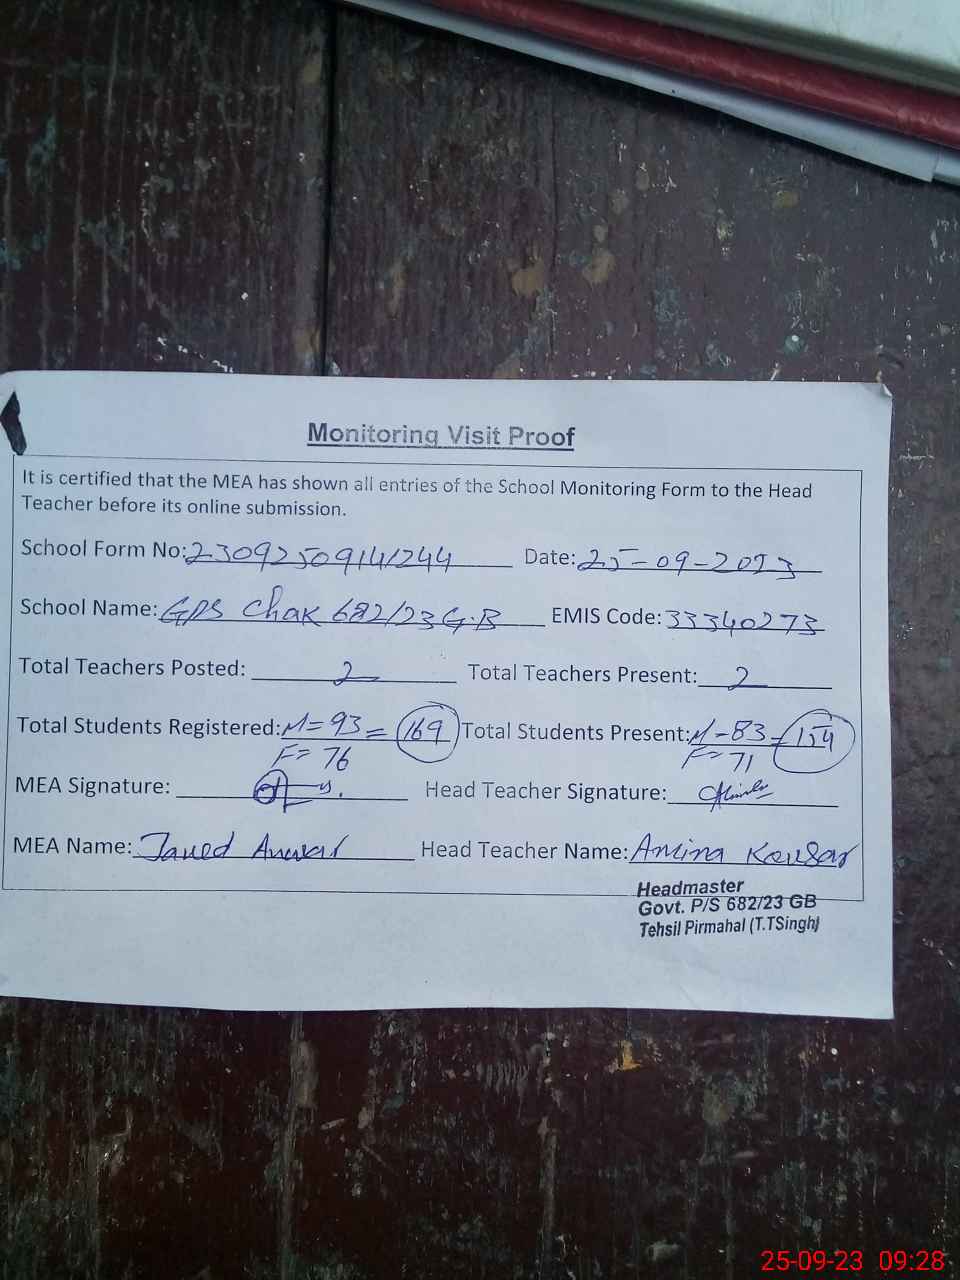 Monitoring Visit Proof
It is certified that the MEA has shown all entries of the School Monitoring Form to the Head
Teacher before its online submission.
School Form No: 23092509141244 Date: 25-09-2023
School Name: GPS Chak 682/23 G.B EMIS Code: 33340273
Total Teachers Posted: 2 Total Teachers Present: 2
Total Students Registered: M=93 = 169 Total Students Present: M-83 = 154
F=76 F=71
MEA Signature: Head Teacher Signature:
MEA Name: Javed Anwar Head Teacher Name: Amina Kousar
Headmaster
Govt. P/S 682/23 GB
Tehsil Pirmahal (T.TSingh)
25-09-23 09:28